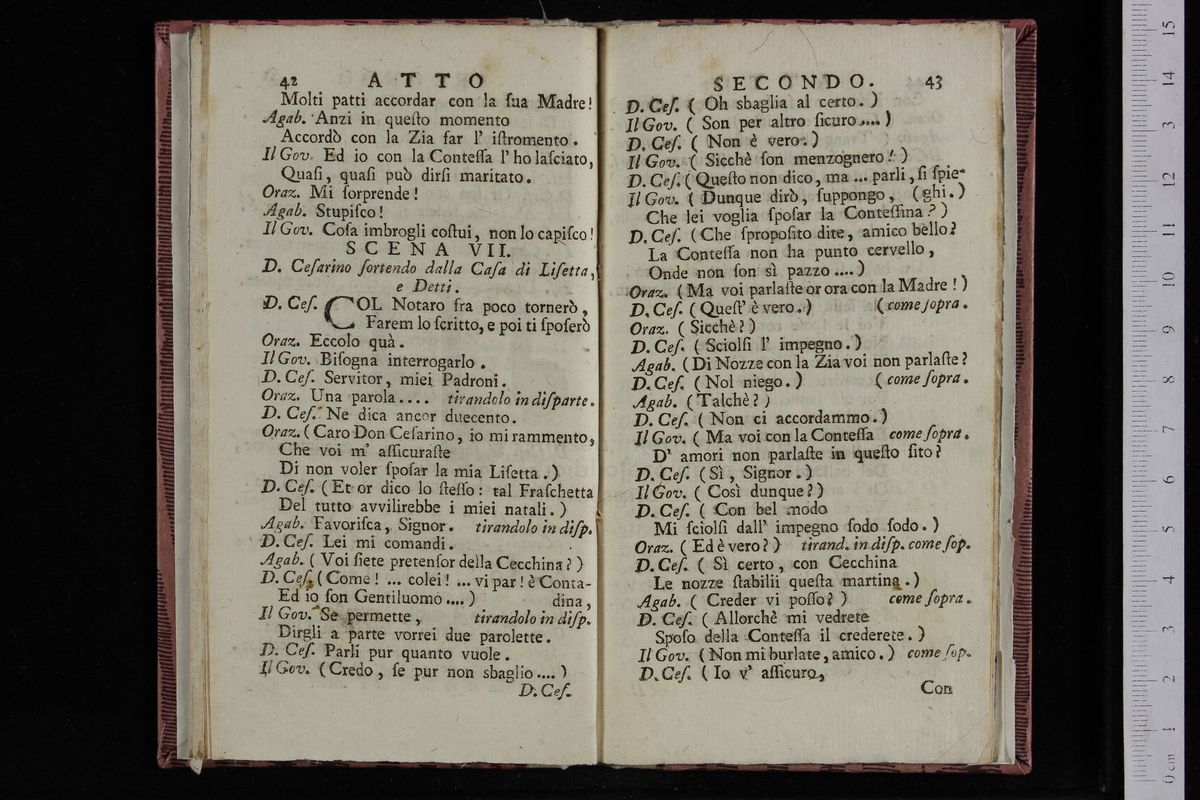 42 ATTO
Molti patti accordar con la ſua Madre!
Agab. Anzi in queſto momento
Accordò con la Zia far l' iſtromento.
Il Gov. Ed io con la Conteſſa l' ho laſciato,
Quaſi, quaſi può dirſi maritato.
Oraz. Mi ſorprende!
Agab. Stupiſco!
Il Gov. Coſa imbrogli coſtui, non lo capiſco!
SCENA VII.
D. Ceſarino ſortendo dalla Caſa di Liſetta,
e Detti.
D. Ceſ. COL Notaro fra poco tornerò,
Farem lo ſcritto, e poi ti ſpoſerò
Oraz. Eccolo quà.
Il Gov. Biſogna interrogarlo.
D. Ceſ. Servitor, miei Padroni.
Oraz. Una parola.... tirandolo in diſparte.
D. Ceſ. Ne dica ancor duecento.
Oraz. (Caro Don Ceſarino, io mi rammento,
Che voi m' aſſicuraſte
Di non voler ſpoſar la mia Liſetta.)
D. Ceſ. (Et or dico lo ſteſſo: tal Fraſchetta
Del tutto avvilirebbe i miei natali.)
Agab. Favoriſca, Signor. tirandolo in diſp.
D. Ceſ. Lei mi comandi.
Agab. (Voi ſiete pretenſor della Cecchina?)
D. Ceſ. (Come! ... colei! ... vi par! è Conta-
Ed io ſon Gentiluomo....) dina,
Il Gov. Se permette, tirandolo in diſp.
Dirgli a parte vorrei due parolette.
D. Ceſ. Parli pur quanto vuole.
Il Gov. (Credo, ſe pur non sbaglio....)
D. Ceſ.
SECONDO. 43
D. Ceſ. (Oh sbaglia al certo.)
Il Gov. (Son per altro ſicuro....)
D. Ceſ. (Non è vero.)
Il Gov. (Sicchè ſon menzognero!)
D. Ceſ. (Queſto non dico, ma ... parli, ſi ſpie-
Il Gov. (Dunque dirò, ſuppongo, (ghi.)
Che lei voglia ſpoſar la Conteſſina?)
D. Ceſ. (Che ſpropoſito dite, amico bello?
La Conteſſa non ha punto cervello,
Onde non ſon sì pazzo....)
Oraz. (Ma voi parlaſte or ora con la Madre!)
D. Ceſ. (Queſt' è vero.) (come ſopra.
Oraz. (Sicchè?)
D. Ceſ. (Sciolſi l' impegno.)
Agab. (Di Nozze con la Zia voi non parlaſte?
D. Ceſ. (Nol niego.) (come ſopra.
Agab. (Talchè?)
D. Ceſ. (Non ci accordammo.)
Il Gov. (Ma voi con la Conteſſa come ſopra.
D' amori non parlaſte in queſto ſito?
D. Ceſ. (Sì, Signor.)
Il Gov. (Così dunque?)
D. Ceſ. (Con bel modo
Mi ſciolſi dall' impegno ſodo ſodo.)
Oraz. (Ed è vero?) tirand. in diſp. come ſop.
D. Ceſ. (Sì certo, con Cecchina
Le nozze ſtabilii queſta martina.)
Agab. (Creder vi poſſo?) come ſopra.
D. Ceſ. (Allorchè mi vedrete
Spoſo della Conteſſa il crederete.)
Il Gov. (Non mi burlate, amico.) come ſop.
D. Ceſ. (Io v' aſſicuro,
Con
15
14
13
12
11
10
9
8
7
6
5
4
3
2
1
0 cm